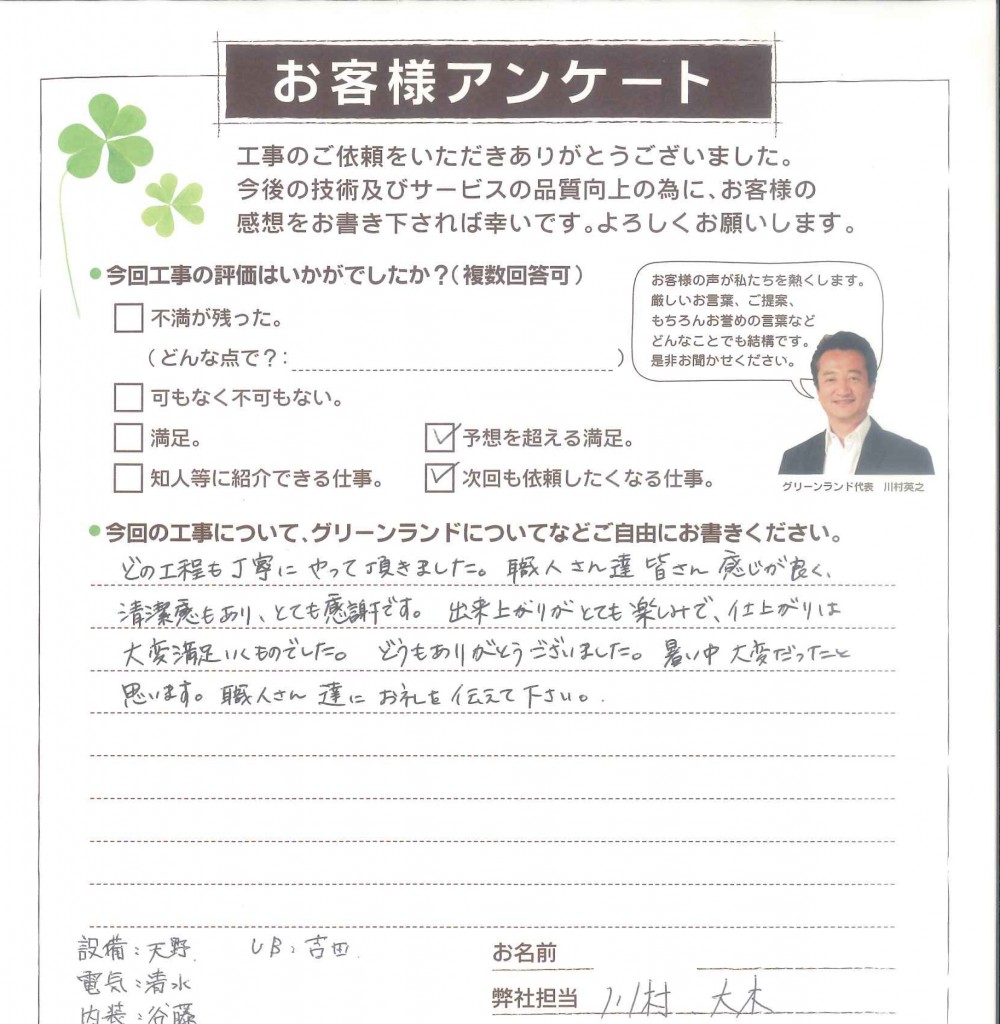 お客様アンケート
工事のご依頼をいただきありがとうございました。
今後の技術及びサービスの品質向上の為に、お客様の
感想をお書き下されば幸いです。よろしくお願いします。
●今回工事の評価はいかがでしたか？（複数回答可）
不満が残った。
（どんな点で？：　）
可もなく不可もない。
満足。
予想を超える満足。
知人等に紹介できる仕事。
次回も依頼したくなる仕事。
お客様の声が私たちを熱くします。
厳しいお言葉、ご提案、
もちろんお誉めの言葉など
どんなことでも結構です。
是非お聞かせください。
グリーンランド代表　川村英之
●今回の工事について、グリーンランドについてなどご自由にお書きください。
どの工程も丁寧にやって頂きました。職人さん達皆さん感じが良く、
清潔感もあり、とても感謝です。出来上がりがとても楽しみで、仕上がりは
大変満足いくものでした。どうもありがとうございました。暑い中大変だったこと
思います。職人さん達にお礼を伝えて下さい。
設備：天野　UB：吉田
電気：清水
内装：谷藤
お名前
弊社担当　川村　大木